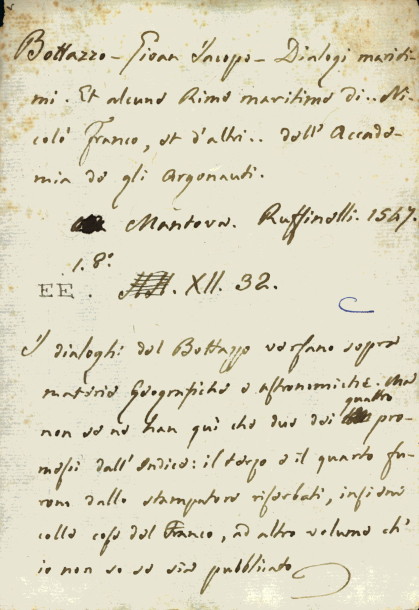 Bottazzo - Gioan Iacopo - Dialogi mariti-
mi. Et alcune Rime maritime di.. Ni-
colò Franco, et d'altri.. dell'Accade-
mia de gli Argonauti.
Mantova. Ruffinelli. 1547.
1. 8°.
EE. XII. 32.
I dialoghi del Bottazzo versano sopra
materie Geografiche e astronomiche. Ma
non se ne han quì che due dei quattro pro-
messi dall'Indice: il terzo e il quarto fu-
rono dallo stampatore riserbati, insieme
colle cose del Franco, ad altro volume ch'
io non so se sia pubblicato